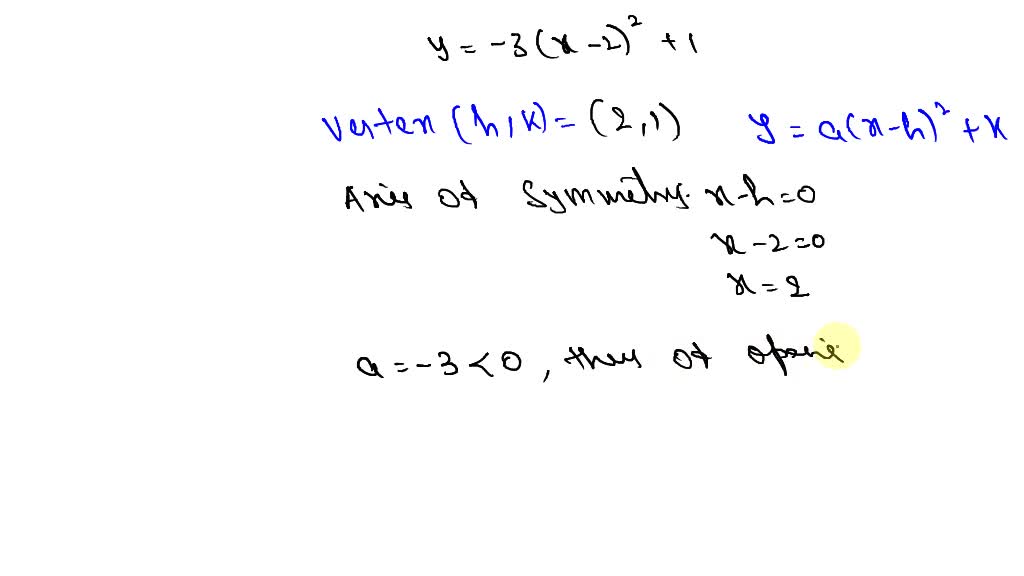 y = -3(x-2)² + 1
Vertex (h, k) = (2, 1) y = a(x-h)² + k
Axis of Symmetry. x-h=0
x-2=0
x=2
a = -3 < 0, thus of